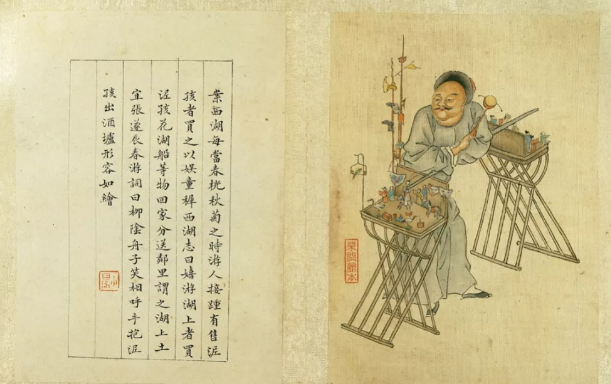 案西湖每當春桃秋菊之時游人接踵有售泥
孩者買之以娛童穉西湖志曰嬉游湖上者買
泥孩花湖船等物回家分送鄰里謂之湖上土
宜張遂辰春游詞曰柳陰舟子笑相呼手抱泥
孩出酒壚形容如繪